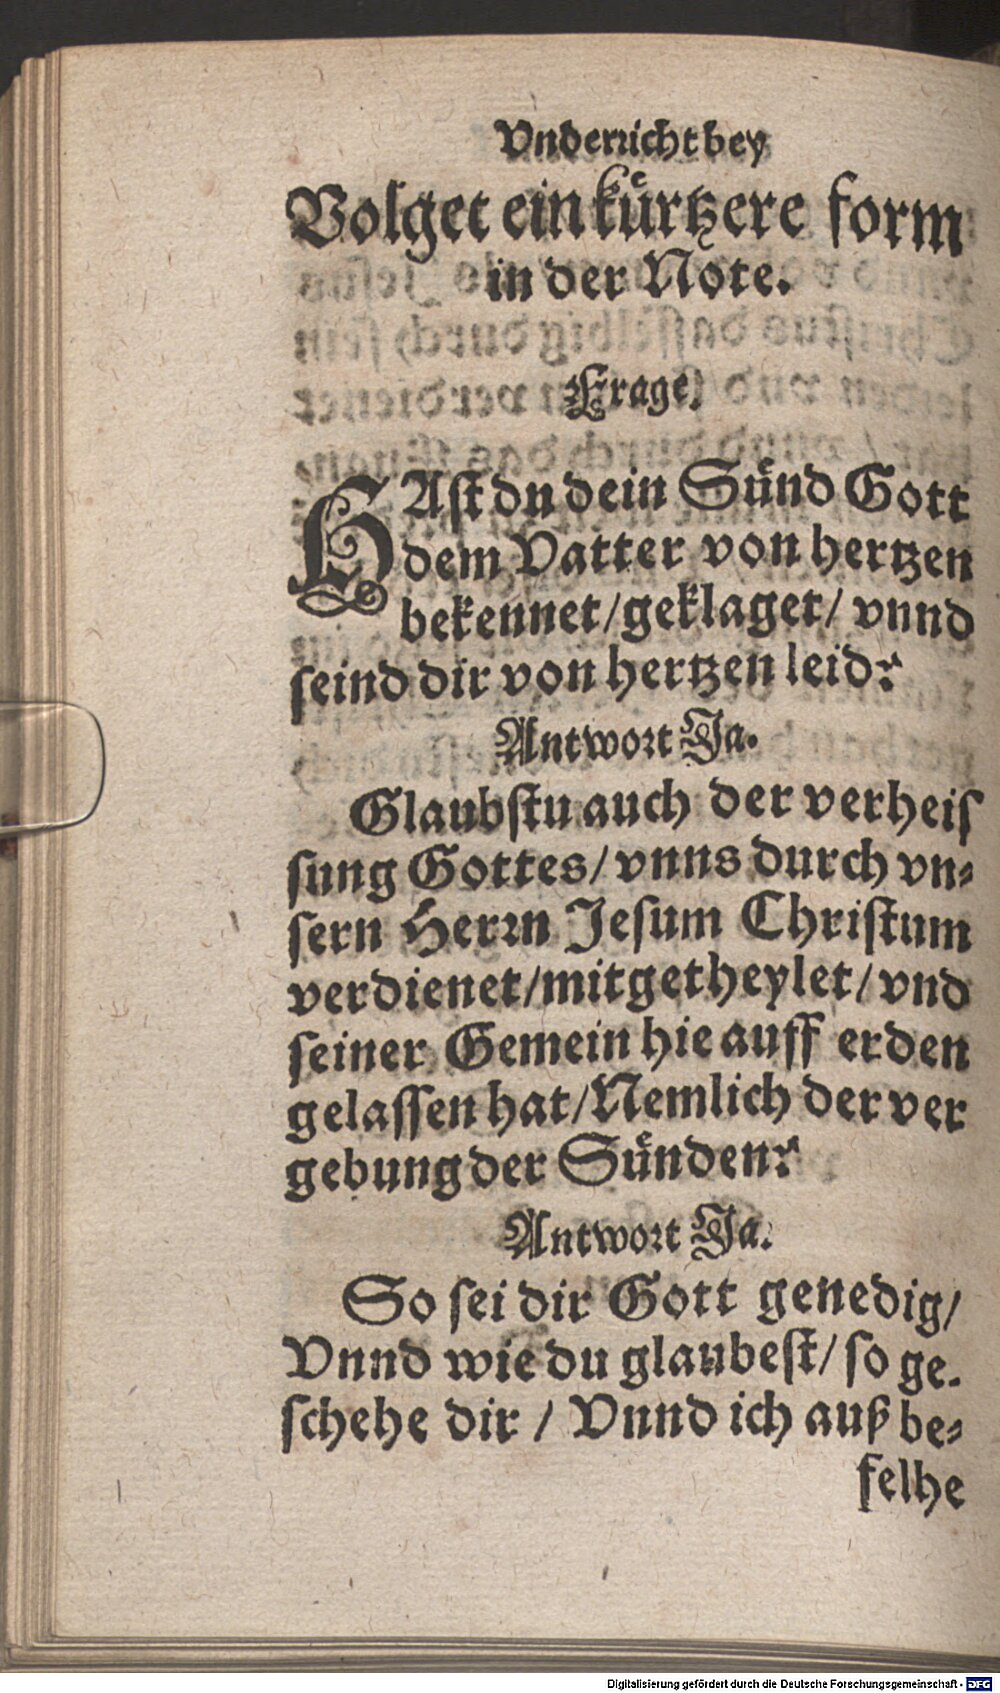 Vnderricht bey
Volget ein kuͤrtzere form
in der Note.
Frage.
HAst du dein Suͤnd Gott
dem Vatter von hertzen
bekennet/geklaget/ vnnd
seind dir von hertzen leid?
Antwort Ja.
Glaubstu auch der verheis
sung Gottes/ vnns durch vn-
sern Herrn Jesum Christum
verdienet/mitgetheylet/ vnd
seiner Gemein hie auff erden
gelassen hat/Nemlich der ver
gebung der Suͤnden?
Antwort Ja.
So sei dir Gott genedig/
Vnnd wie du glaubest/ so ge-
schehe dir / Vnnd ich auß be-
felhe
Digitalisierung gefördert durch die Deutsche Forschungsgemeinschaft - DFG